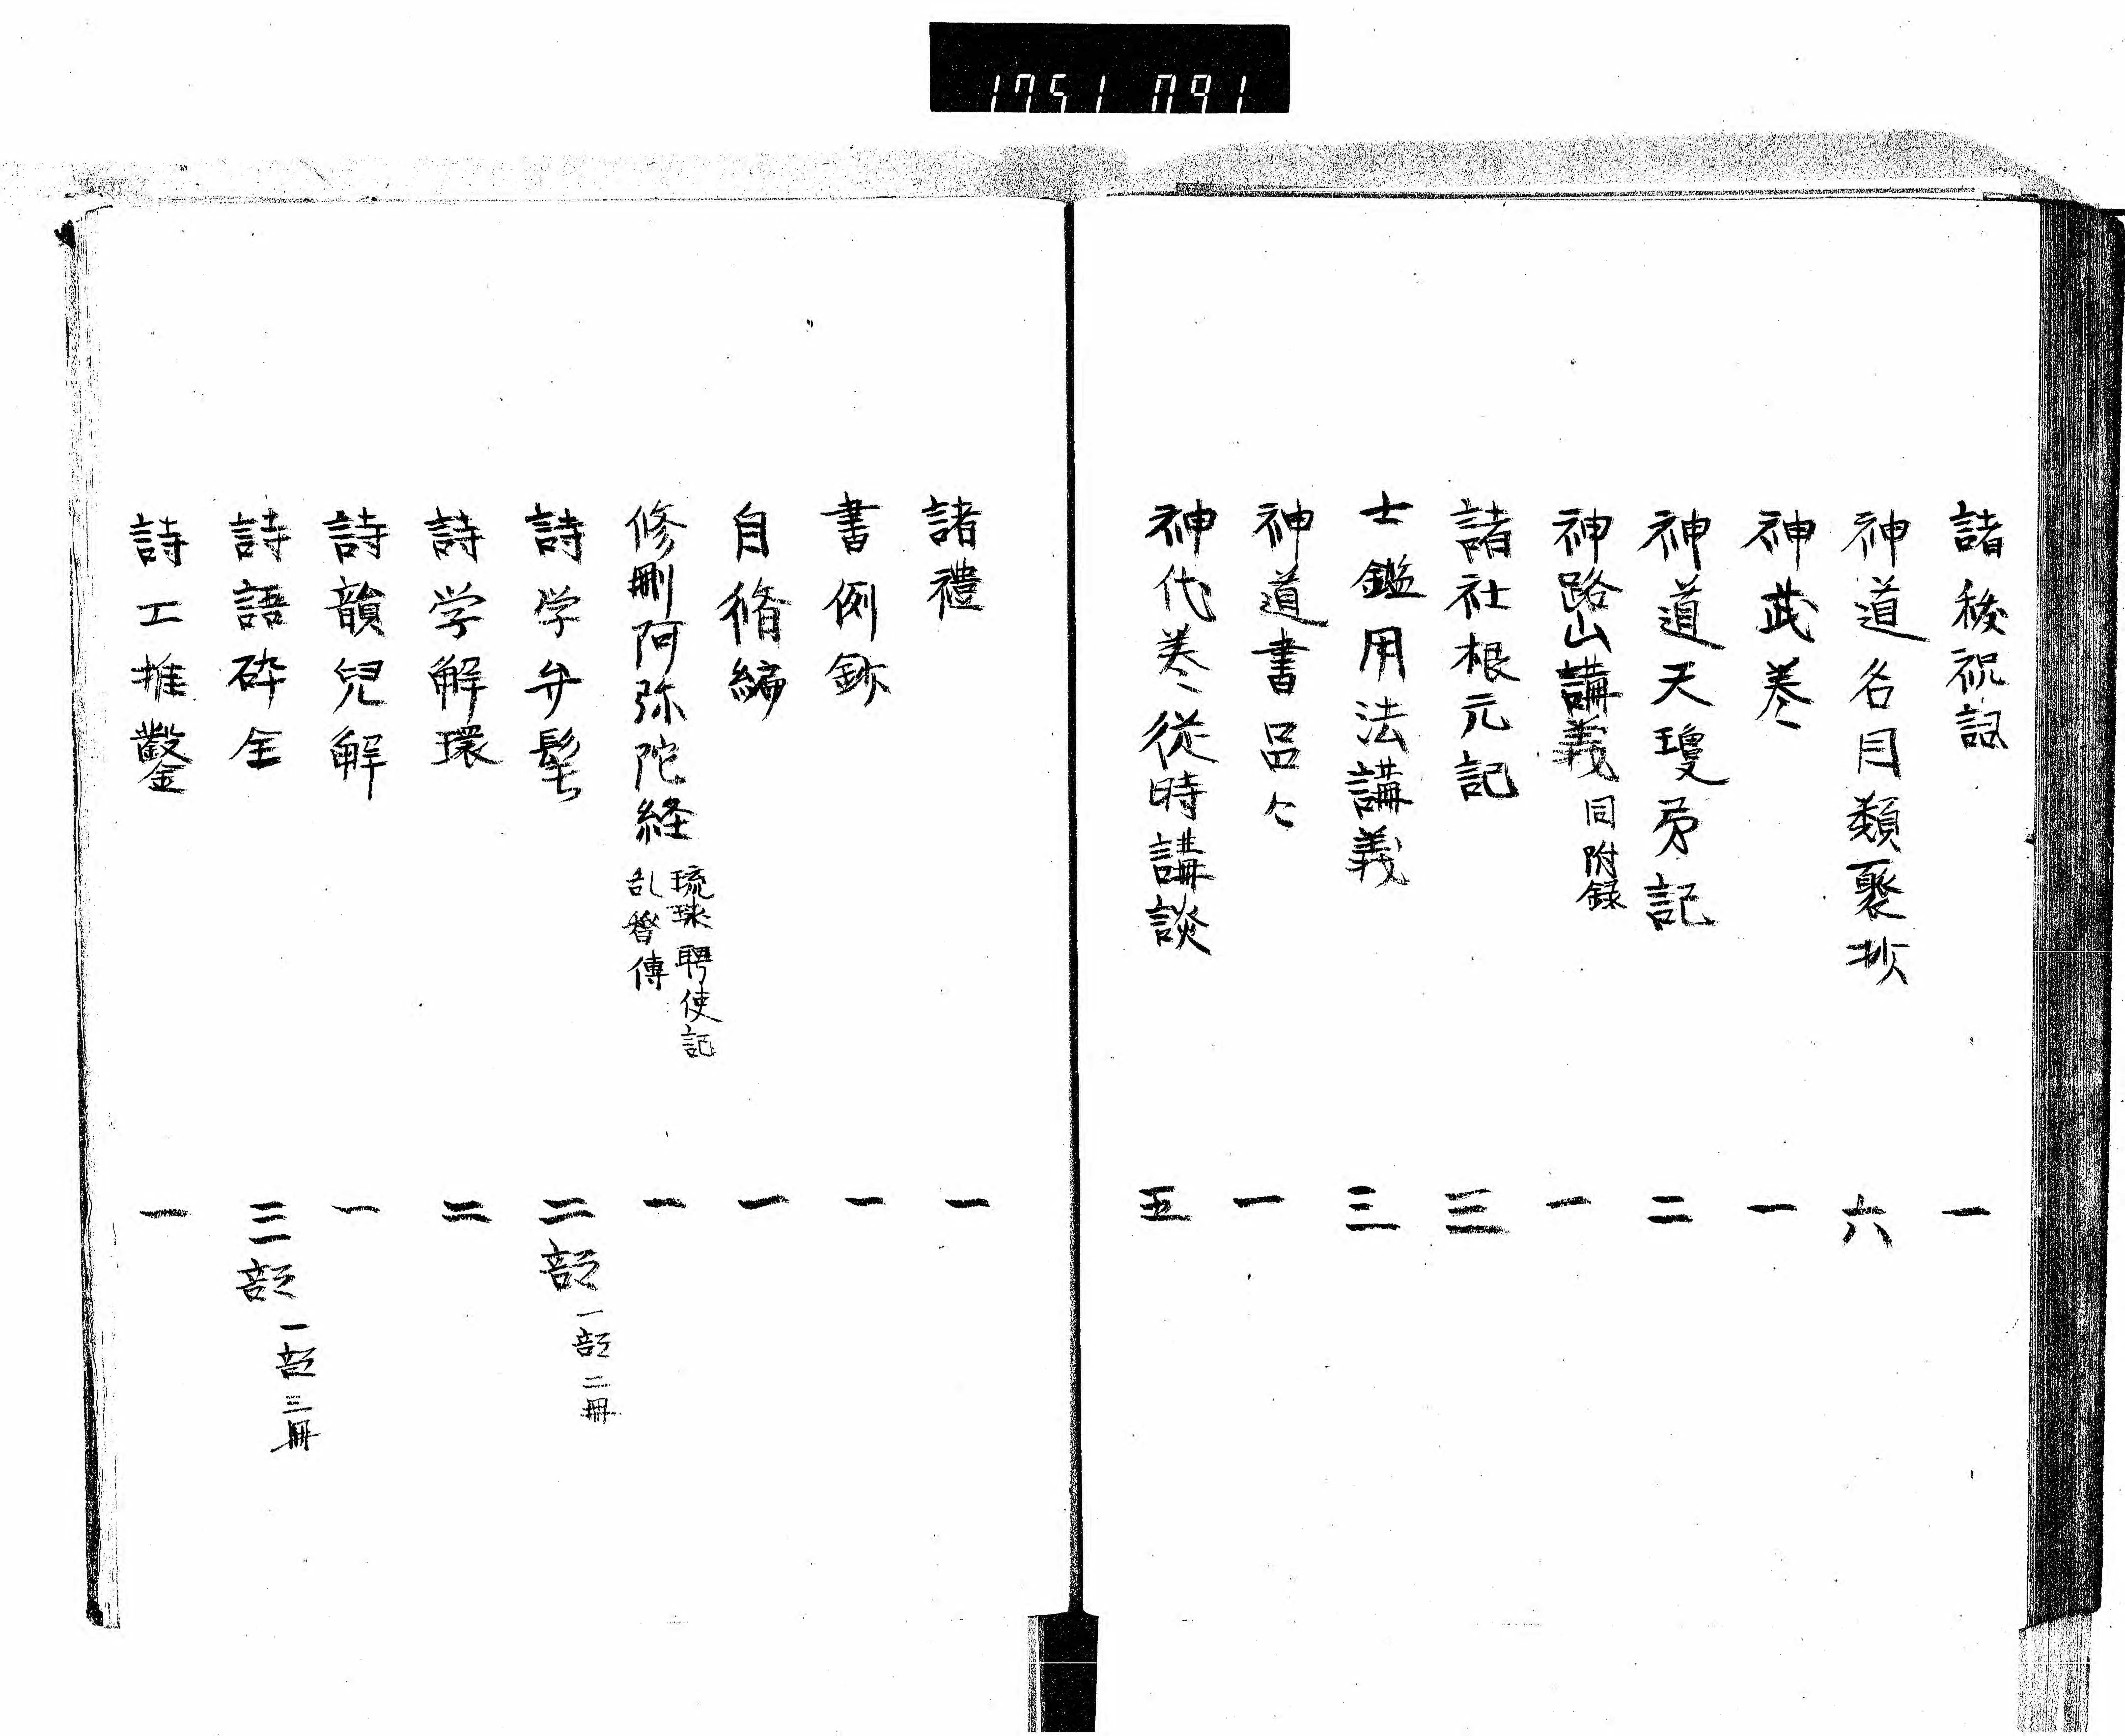 1751 091
諸祓祝詞 一
神道名目類聚抄 六
神武巻 一
神道天瓊矛記 二
神路山講義 同附録 一
諸社根元記 三
士鑑用法講義 三
神道書 一
神代巻従時講談 五
諸禮 一
書例鈔 一
自脩編 一
修刪阿弥陀経 琉球聘使記 乱聟傳 一
詩学弁髦 二部 一部二冊
詩学解環 二
詩韻兒解 一
詩語砕金 三部 一部三冊
詩工推鑿 一